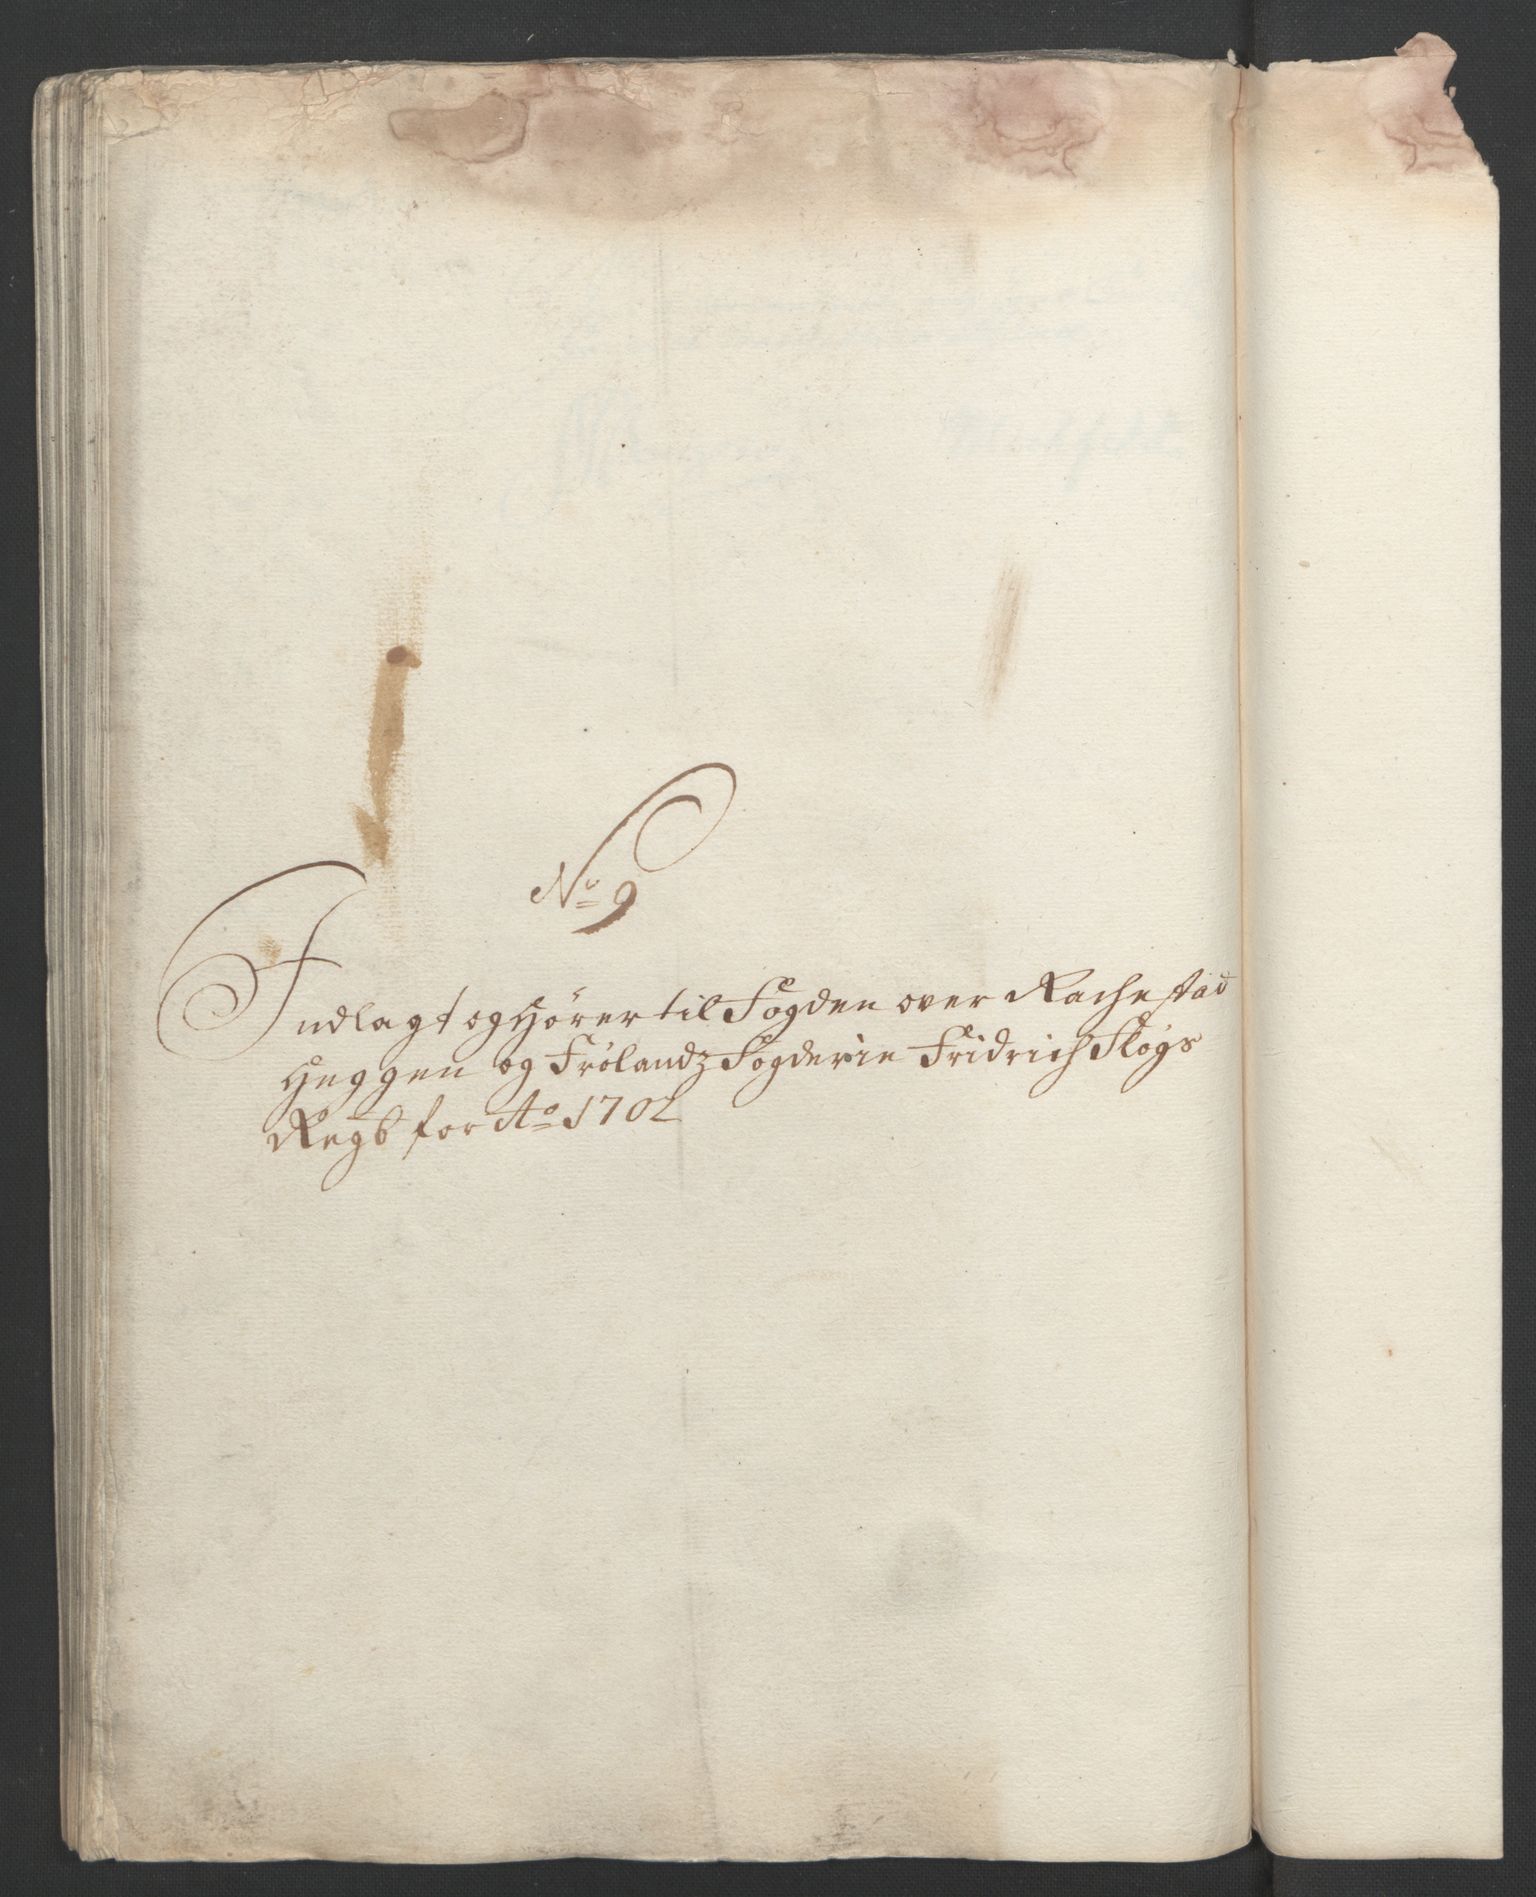 No 9
Indlagt og Hörer til Fogden over Rachestad
Heggen og Frölandz Fogderie Fridrich Flögs
Regb for Ao 1702